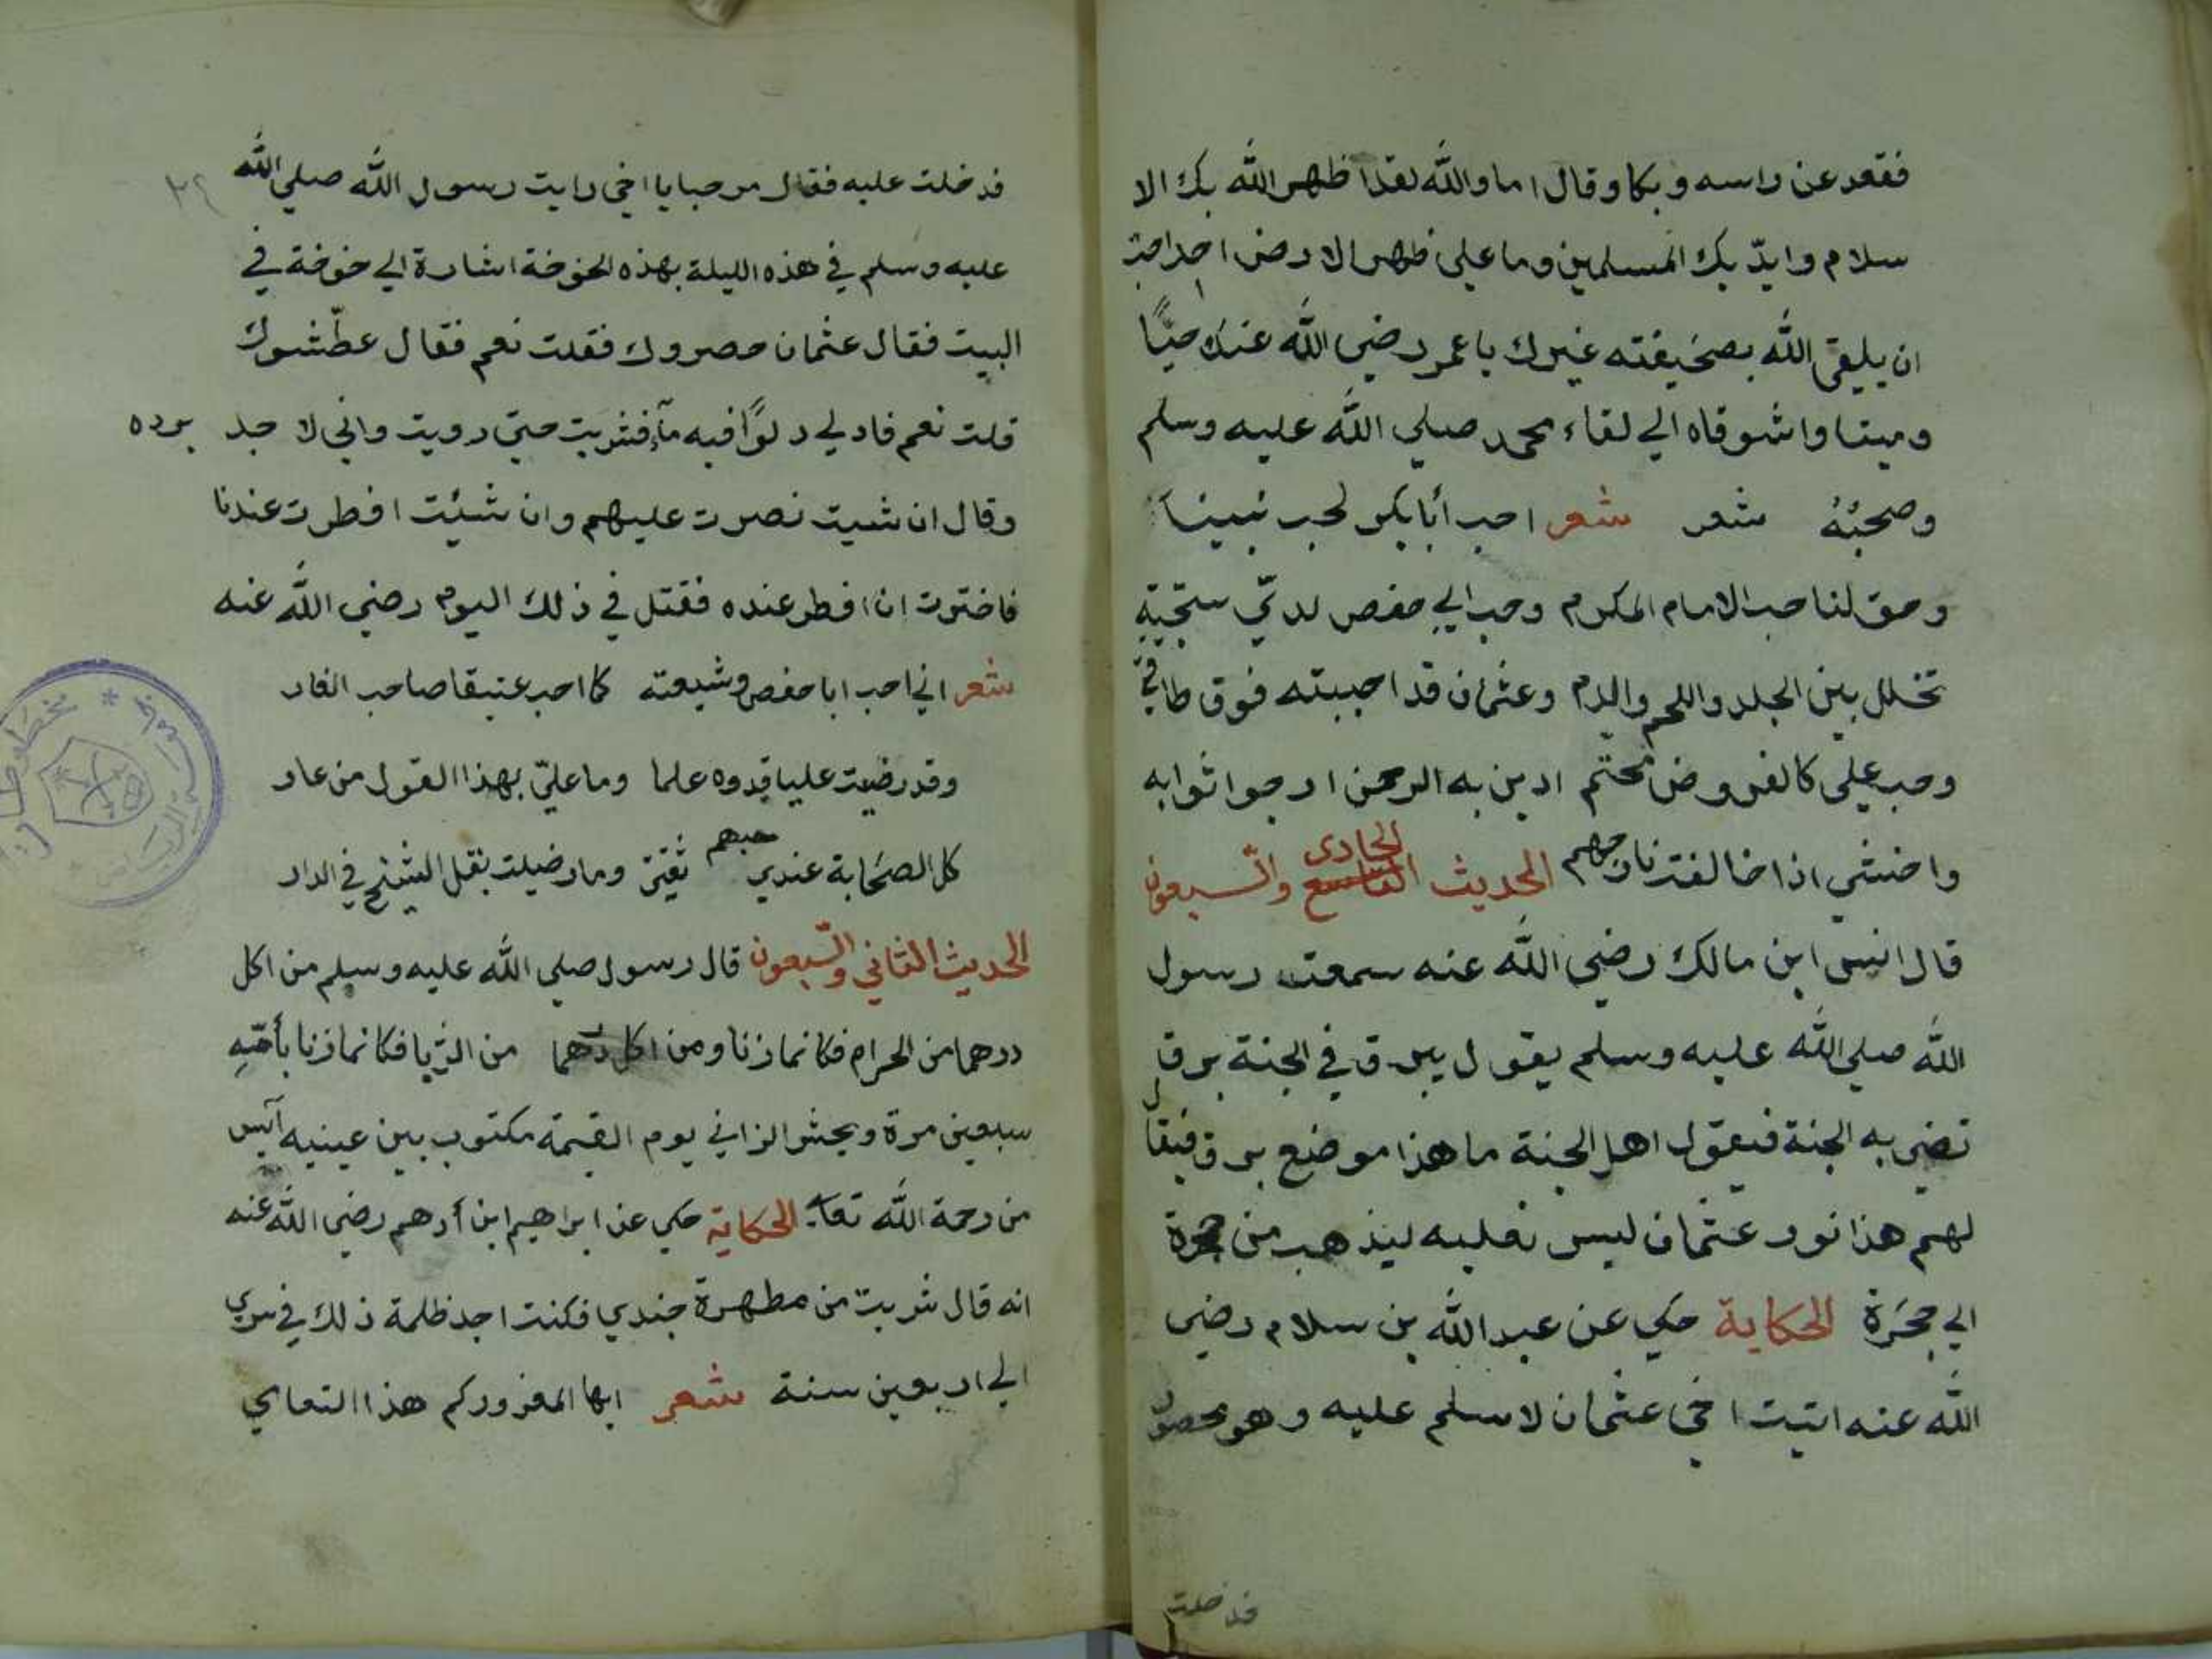 فقعد عن راسه وبكا وقال اما والله لقد اظهر الله بك الا
سلام وايدّ بك المسلمين وما علي ظهر الارض احد احبّ
ان يلقي الله بصحيفته غيرك يا عمر رضي الله عنك حيّا
وميتا واشوقاه الي لقاء محمد صلي الله عليه وسلم
وصحبته شعر شعر احب أبا بكر لحب نبينا
وحق لنا حب الامام المكرم وحب ابي حفص لديّ سجّية
تخلل بين الجلد واللحم والدم وعثمان قد احببته فوق طاقتي
وحب علي كالفروض محتم ادين به الرحمن ارجوا ثوابه
واخشي اذا خالفت نار جهنم الحديث الحادى والسبعون
قال انس ابن مالك رضي الله عنه سمعت رسول
الله صلي الله عليه وسلم يقول يبرق في الجنة برق
تضي به الجنة فيعقول اهل الجنة ما هذا موضع برق فيقال
لهم هذا نور عثمان ليس نعليه ليذهب من حجرة
الي حجرة الحكاية حكي عن عبد الله بن سلام رضي
الله عنه اتيت اخي عثمان لاسلم عليه وهو محصور
فدخلت
٢٩
فدخلت عليه فقال مرحبا يا اخي رايت رسول الله صلي الله
عليه وسلم في هذه الليلة بهذه الخوخة اشارة الي خوخة في
البيت فقال عثمان حصروك فقلت نعم فقال عطّشوك
قلت نعم فادلي دلوًا فيه مآء فشربت حتي رويت واني لا جد برده
وقال ان شيت نصرت عليهم وان شئيت افطرت عندنا
فاخترت ان افطر عنده فقتل في ذلك اليوم رضي الله عنه
شعر اني احب ابا حفص وشيعته كما احب عتيقا صاحب الغار
وقد رضيت عليا قدوه علما وما عليّ بهذا القول من عار
كل الصحابة عندي حبهم وما رضيت بقل الشيخ في الدار
الحديث الثاني والسّبعون قال رسول صلي الله عليه وسلم من اكل
درهما من الحرام فكانما زنا ومن اكل درهما من الرّبا فكانما زنا بأمّه
سبعين مرة ويحشر الزاني يوم القيمة مكتوب بين عينيه آيس
من رحمة الله تعا الحكاية حكي عن ابراهيم ابن أدهم رضي الله عنه
انه قال شربت من مطهرة جندي فكنت اجد ظلمة ذلك في سري
الي اربعين سنة شعر ايها المغرور كم هذا التعامي